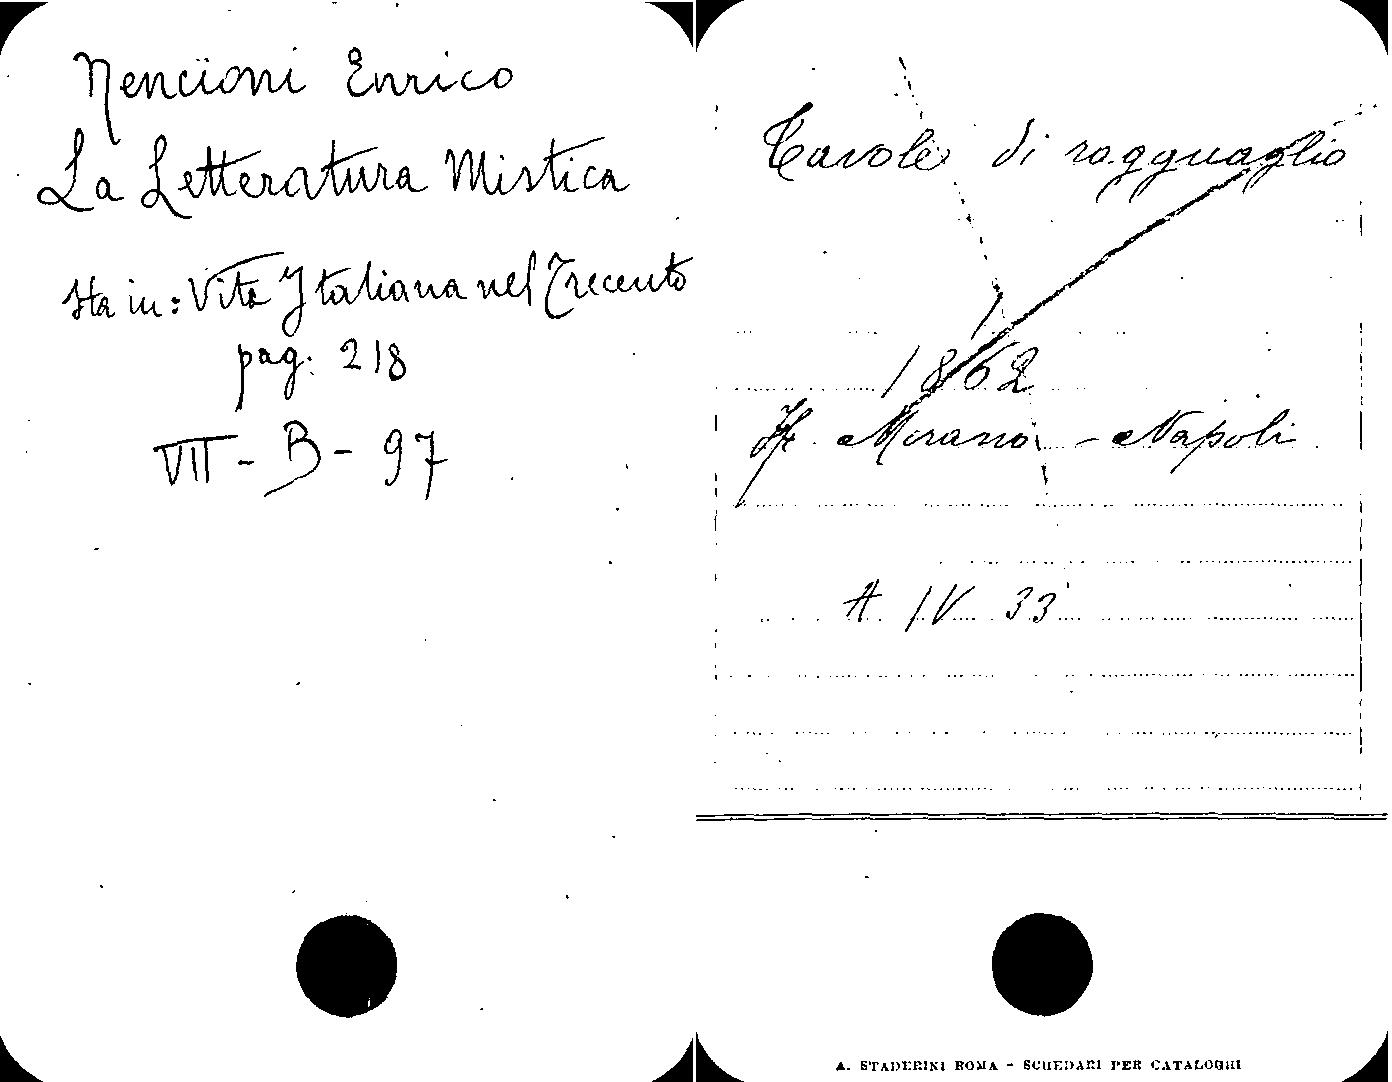 Nencioni Enrico
La Letteratura Mistica
Sta in: Vita Italiana nel Trecento
pag. 218
VII - B - 97
Tavole di ragguaglio
1862
Morano - Napoli
A IV 33
A. STADERINI ROMA - SCHEDARI PER CATALOGHI